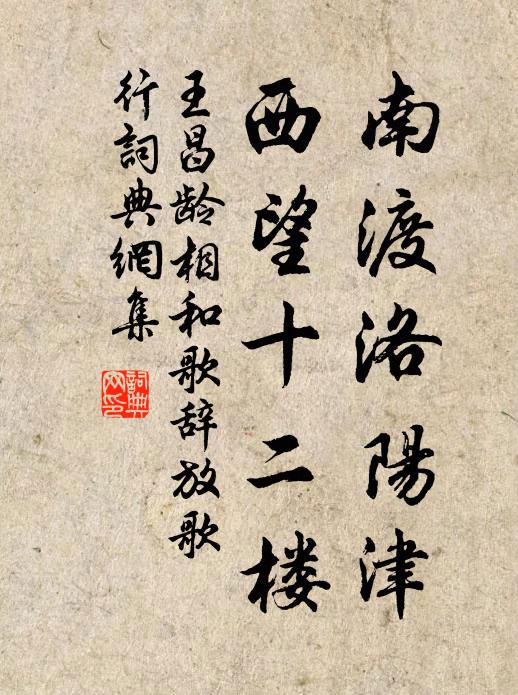 南渡洛陽津
西望十二楼
王昌龄相和歌辞放歌
行詞典網集
詞典
网印